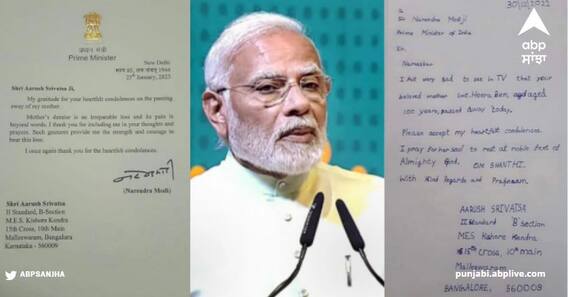 प्रधान मंत्री
Prime Minister
New Delhi
शक 1944
25th January, 2023
Shri Aarush Srivatsa Ji,
My gratitude for your heartfelt condolences on the passing
away of my mother.
Mother's demise is an irreparable loss and its pain is
beyond words. I thank you for including me in your thoughts
and prayers. Such gestures provide me the strength and courage to
bear this loss.
I once again thank you for the heartfelt condolences.
(Narendra Modi)
Shri Aarush Srivatsa
II Standard, B-Section
M.E.S. Kishora Kendra
15th Cross, 10th Main
Malleswaram, Bengaluru
Karnataka - 560009
ABPSANJHA
30/12/2022
Sri Narendra Modiji
Prime Minister of India
Sir,
Namaskar
I felt very sad to see in TV that your
beloved mother Smt. Heera Ben, aged
100 years, passed away today.
Please accept my heartfelt condolences.
I pray for her soul to rest at noble feet of
Almighty God. OM SHANTHI.
With kind regards and Pranaam.
AARUSH SRIVATSA
II Standard 'B' Section
MES Kishore Kendra
15th cross, 10th main
Malleswaram
BANGALORE, 560009
abp
ਸਾਂਝਾ
punjabi.abplive.com